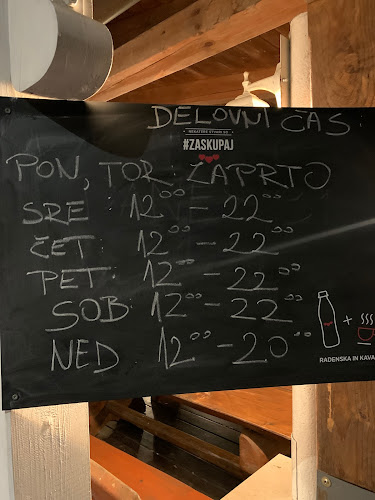 DELOVNI ČAS
NEKATERE STVARI SO
#ZASKUPAJ
PON, TOR: ZAPRTO
SRE: 12⁰⁰ - 22⁰⁰
ČET: 12⁰⁰ - 22⁰⁰
PET: 12⁰⁰ - 22⁰⁰
SOB 12⁰⁰ - 22⁰⁰
NED 12⁰⁰ - 20⁰⁰
+
RADENSKA IN KAVA